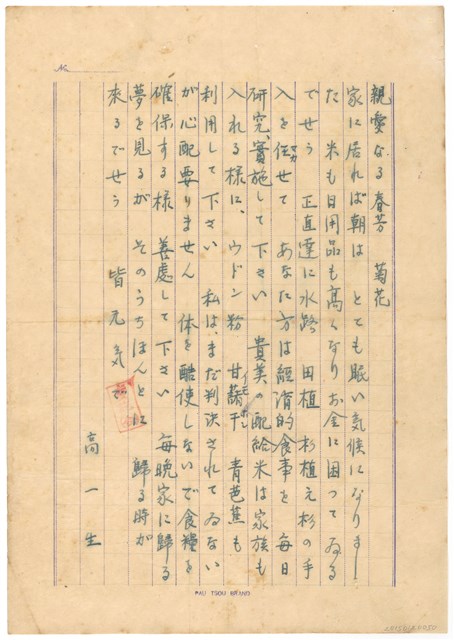 親愛なる春芳 菊花
家に居れば朝は とても眠い気候になりまし
た 米も日用品も高くなりお金に困つてゐる
でせう 正直達に水路 田植 杉植え杉の手
入を任せて あなた方は経済的食事を 毎日
マカ
研究、實施して下さい 貴美の配給米は家族も
入れる様に、ウドン粉 甘藷干 青芭蕉も
イモホシ
利用して下さい 私は、まだ判決されてゐない
が心配要りません 体を酷使しないで食糧を
確保する様 善處して下さい 毎晩家に歸る
夢を見るが そのうちほんとに 歸る時が
來るでせう 皆元気で
高一生
No.